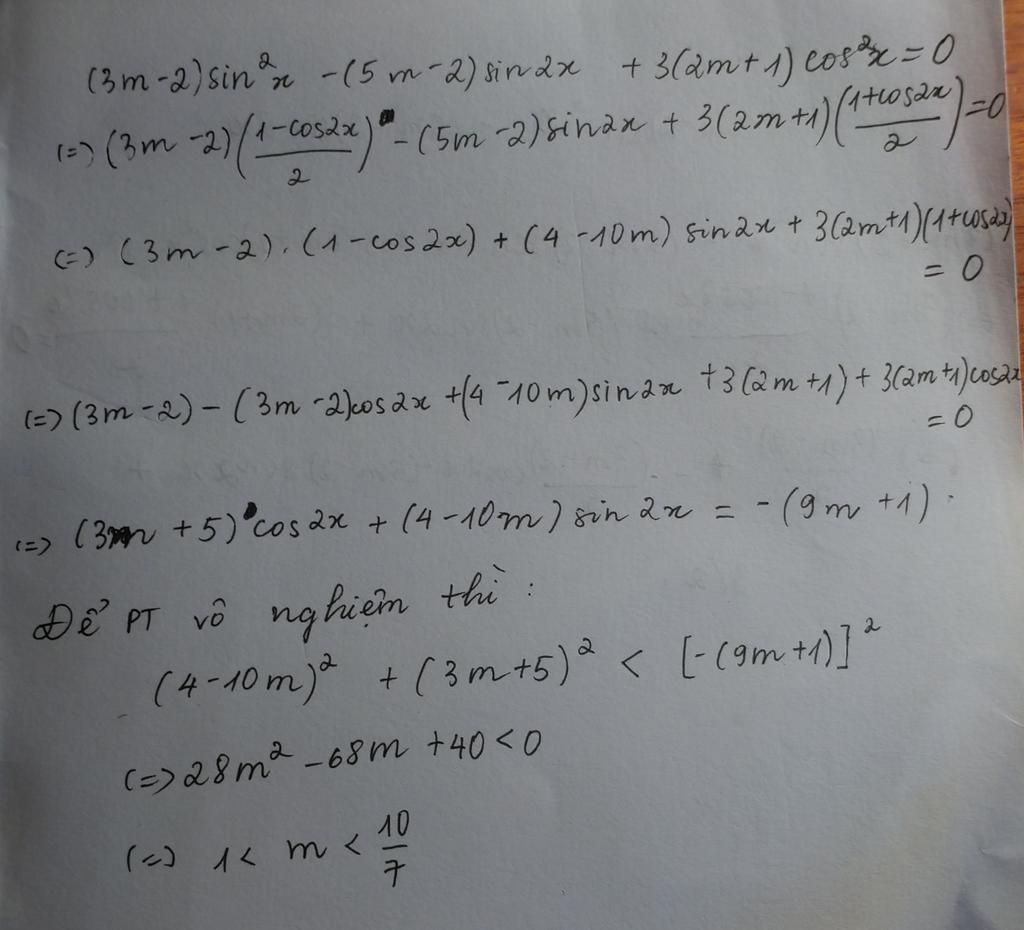 (3m-2)sin²x -(5m-2)sin2x +3(2m+1)cos²x=0
(=) (3m-2)((1-cos2x)/2) -(5m-2)sin2x + 3(2m+1)((1+cos2x)/2)=0
(=) (3m-2).(1-cos2x)+(4-10m) sin2x + 3(2m+1)(1+cos2x)
= 0
(=) (3m-2)-(3m-2)cos2x+(4-10m)sin2x +3(2m+1)+3(2m+1)cos2x
=0
(=) (3m+5)cos2x + (4-10m) sin2x = -(9m+1).
Để PT vô nghiệm thì:
(4-10m)² + (3m+5)² < [-(9m+1)]²
(=) 28m² -68m +40<0
(=) 1< m < 10/7